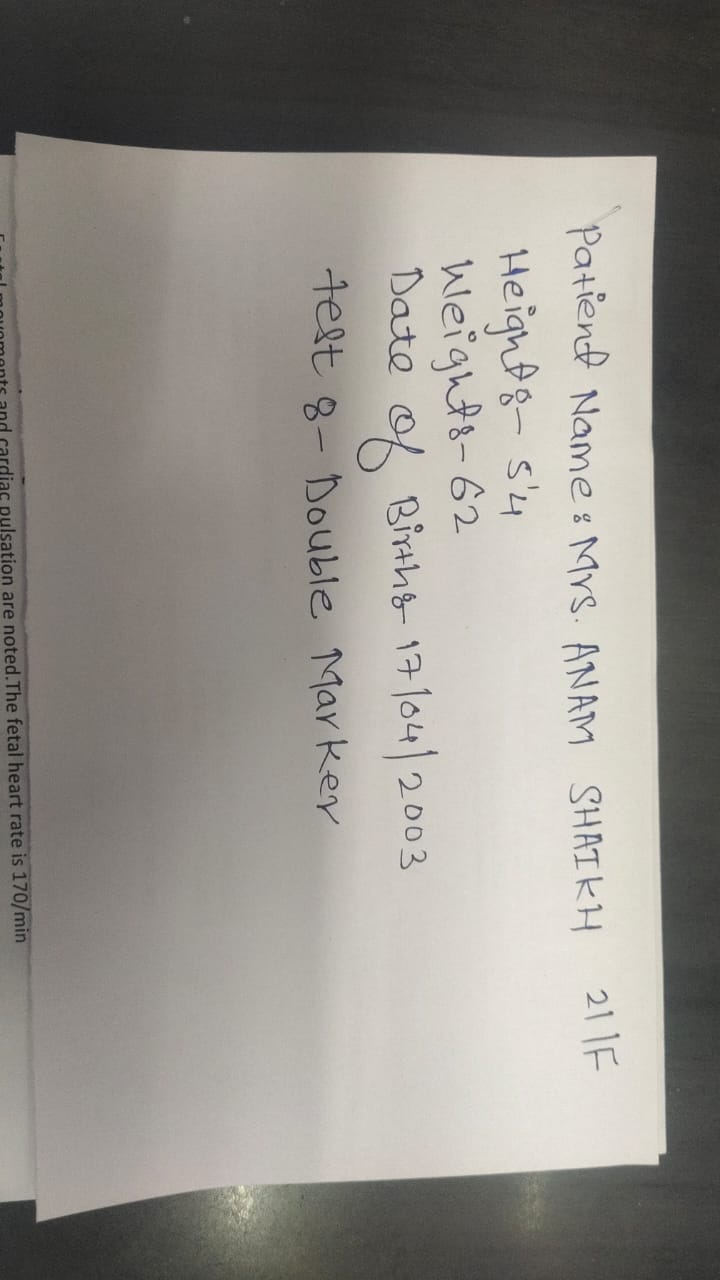 Patient Name: Mrs. ANAM SHAIKH 21/F
Height:- 5'4
Weight:- 62
Date of Birth:- 17/04/2003
test :- Double Marker
movements and cardiac pulsation are noted.The fetal heart rate is 170/min